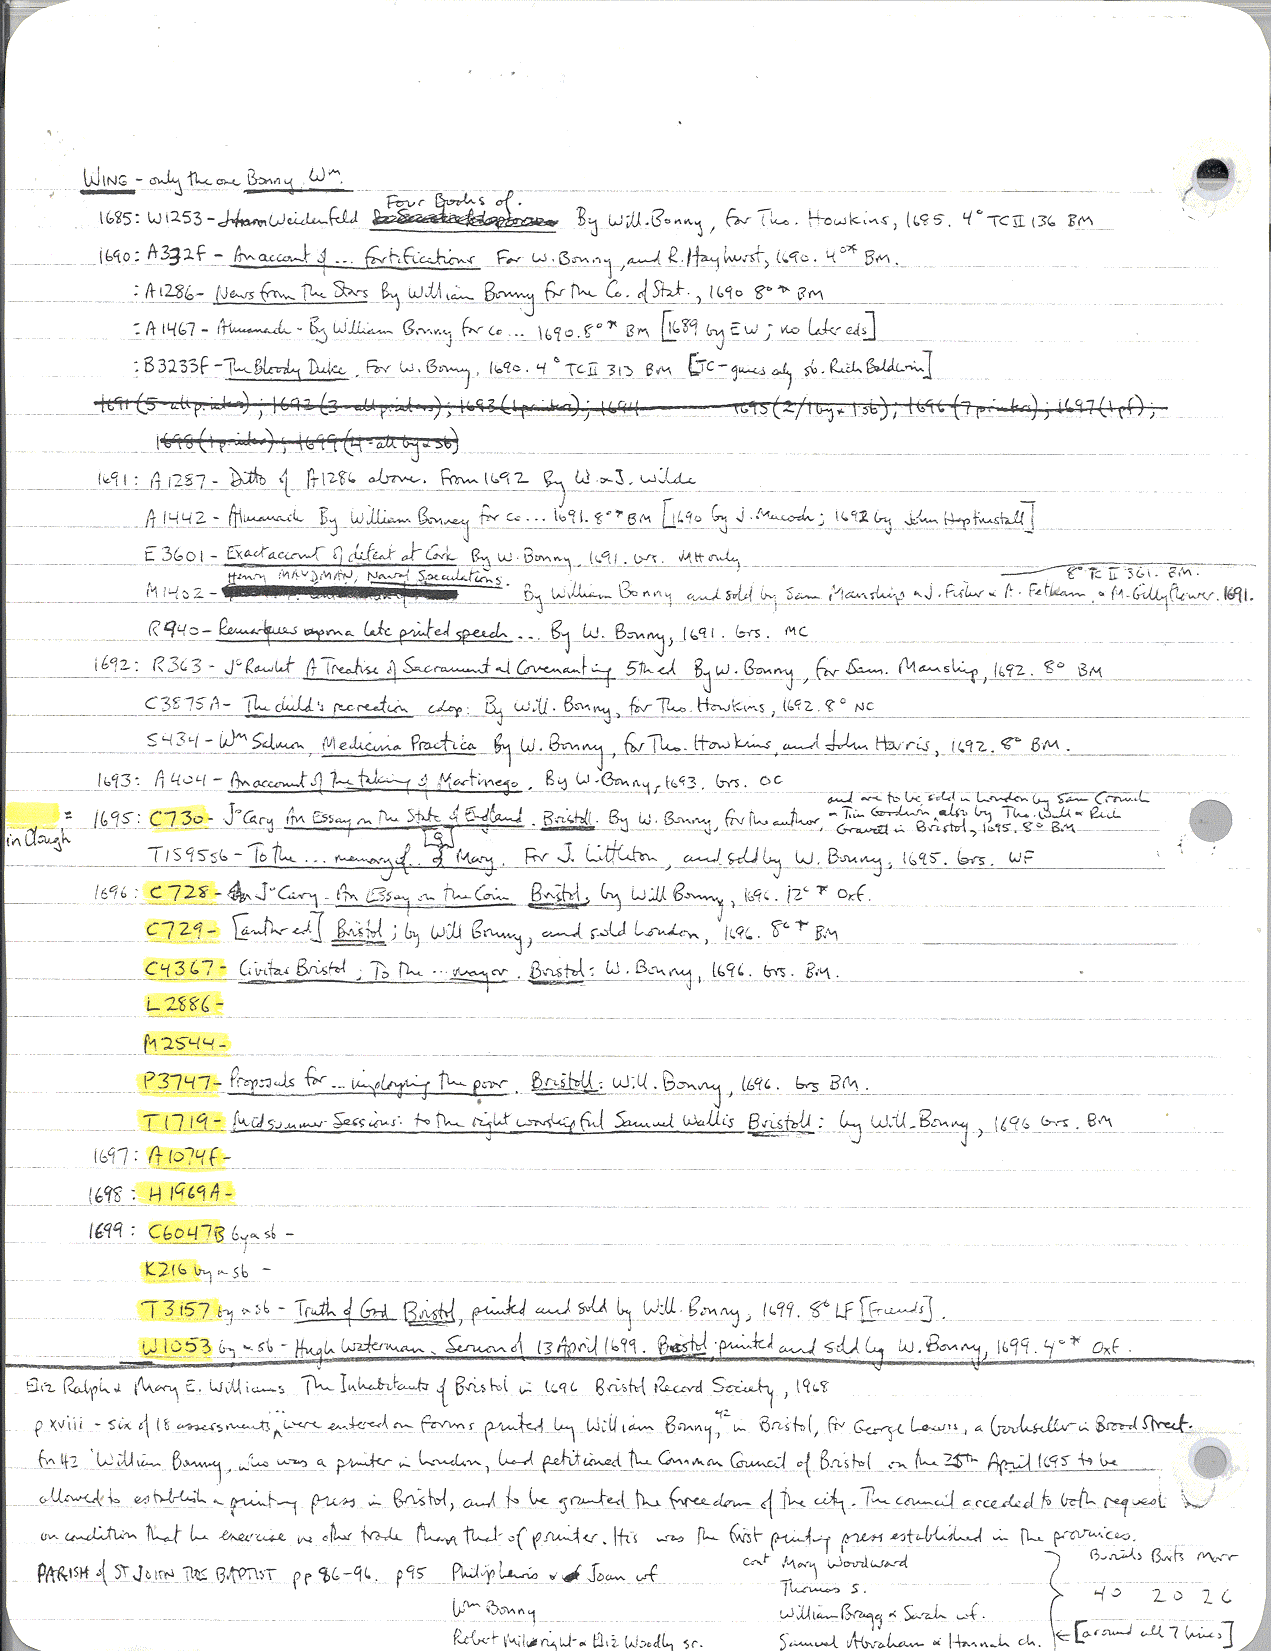 WING - only the one Bonny, Wm.
Four Books of.
1685: W1253 - Weidenfeld By Will. Bonny, for Tho. Howkins, 1685. 4° TC II 136 BM
1690: A332F - An account of ... fortifications For W. Bonny, and R. Hayhurst, 1690. 4°* BM.
: A1286 - News from the Stars By William Bonny for the Co. of Stat., 1690 8°* BM
: A1467 - Almanack - By William Bonny for co ... 1690. 8°* BM [1689 by EW; no later eds]
: B3233F - The Bloody Duke. For W. Bonny, 1690. 4° TC II 313 BM [TC - gives only sb. Rich Baldwin]
1691 (5 - all printers); 1692 (3 - all printers); 1693 (1 printer); 1694 1695 (2/1 by & 1 sb); 1696 (7 printer); 1697 (1 pf);
1698 (1 printer); 1699 (4 - all by & sb)
1691: A1287 - Ditto of A1286 above. From 1692 By W. & J. Wilde
A1442 - Almanack By William Bonney for co ... 1691. 8°* BM [1690 by J. Macock; 1692 by John Heptinstall]
E3601 - Exact account of defeat at Cork By W. Bonny, 1691. brs. MH only
Henry MAYDMAN, Naval Speculations. 8° TC II 361. BM.
M1402 - By William Bonny and sold by Sam Manship & J. Fisher & A. Fetham, & M. Gillyflower. 1691.
R940 - Remarques upon a late printed speech ... By W. Bonny, 1691. brs. MC
1692: R363 - Jo Rawlet A Treatise of Sacramental Covenanting 5th ed By W. Bonny, for Sam. Manship, 1692. 8° BM
C3875A - The child's recreation cdop: By Will. Bonny, for Tho. Howkins, 1692. 8° NC
S434 - Wm Salmon, Medicina Practica By W. Bonny, for Tho. Howkins, and John Harris, 1692. 8° BM.
1693: A404 - An account of the taking of Martinego. By W. Bonny, 1693. brs. OC
and are to be sold in London by Sam Crouch
= 1695: C730 - Jo Cary An Essay on the State of England. Bristoll. By W. Bonny, for the author, & Tim Goodwin, also by Tho. Wall & Rich
in Clough Gravett in Bristol, 1695. 8° BM
T1595b - To the ... memory of ... of Mary. For J. Littleton, and sold by W. Bonny, 1695. brs. WF
1696: C728 - Jo Cary - An Essay on the Coin Bristol, by Will Bonny, 1696. 12°* Oxf.
C729 - [anthr ed] Bristol; by Will Bonny, and sold London, 1696. 8°* BM
C4367 - Civitas Bristol; To the ... mayor. Bristol: W. Bonny, 1696. brs. BM.
L2886 -
M2544 -
P3747 - Proposals for ... imploying the poor. Bristoll: Will. Bonny, 1696. brs BM.
T1719 - Midsummer Sessions: to the right worshipful Samuel Wallis Bristoll: by Will. Bonny, 1696 brs. BM
1697: A1074F -
1698: H1969A -
1699: C6047B by & sb -
K216 by & sb -
T3157 by & sb - Truth of God Bristol, printed and sold by Will. Bonny, 1699. 8° LF [Friends].
W1053 by & sb - Hugh Waterman, Sermon of 13 April 1699. Bristol: printed and sold by W. Bonny, 1699. 4°* Oxf.
Eliz Ralph & Mary E. Williams The Inhabitants of Bristol in 1696 Bristol Record Society, 1968
p xviii - six of 18 assessments "were entered on forms printed by William Bonny,42 in Bristol, for George Lewis, a bookseller in Broad Street.
fn 42 'William Bonny, who was a printer in London, had petitioned the Common Council of Bristol on the 25th April 1695 to be
allowed to establish a printing press in Bristol, and to be granted the freedom of the city. The council acceded to both request
on condition that he exercise no other trade than that of printer. His was the first printing press established in the provinces.
PARISH of ST JOHN THE BAPTIST pp 86-96. p95 Philip Lewis & Joan wf cont Mary Woodward Burials Births Marr
Thomas S. 40 20 26
Wm Bonny William Bragg & Sarah wf.
Robert Millwright & Eliz Woodly sr. Samuel Abraham & Hannah ch. ← [around all 7 lines]